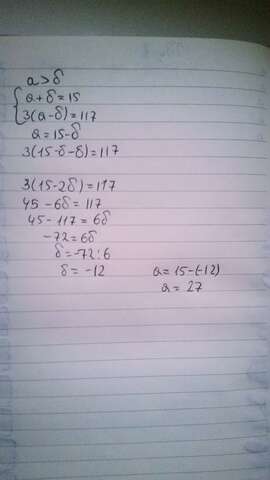 a>б
a+б=15
3(a-б)=117
a=15-б
3(15-б-б)=117
3(15-2б)=117
45-6б=117
45-117=6б
-72=6б
б=-72:6
б=-12
a=15-(-12)
a=27